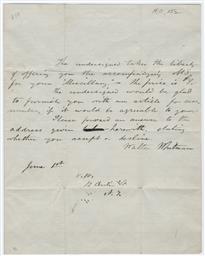 The undersigned takes the liberty
of offering you the accompanying MS.
for your "Miscellany," — the price is $8.
The undersigned would be glad
to furnish you with an article for each
number, if it would be agreeable to you.
Please forward an answer to the
address given herewith, stating
whether you accept or decline
Walter Whitman
June 1st
N. Y.